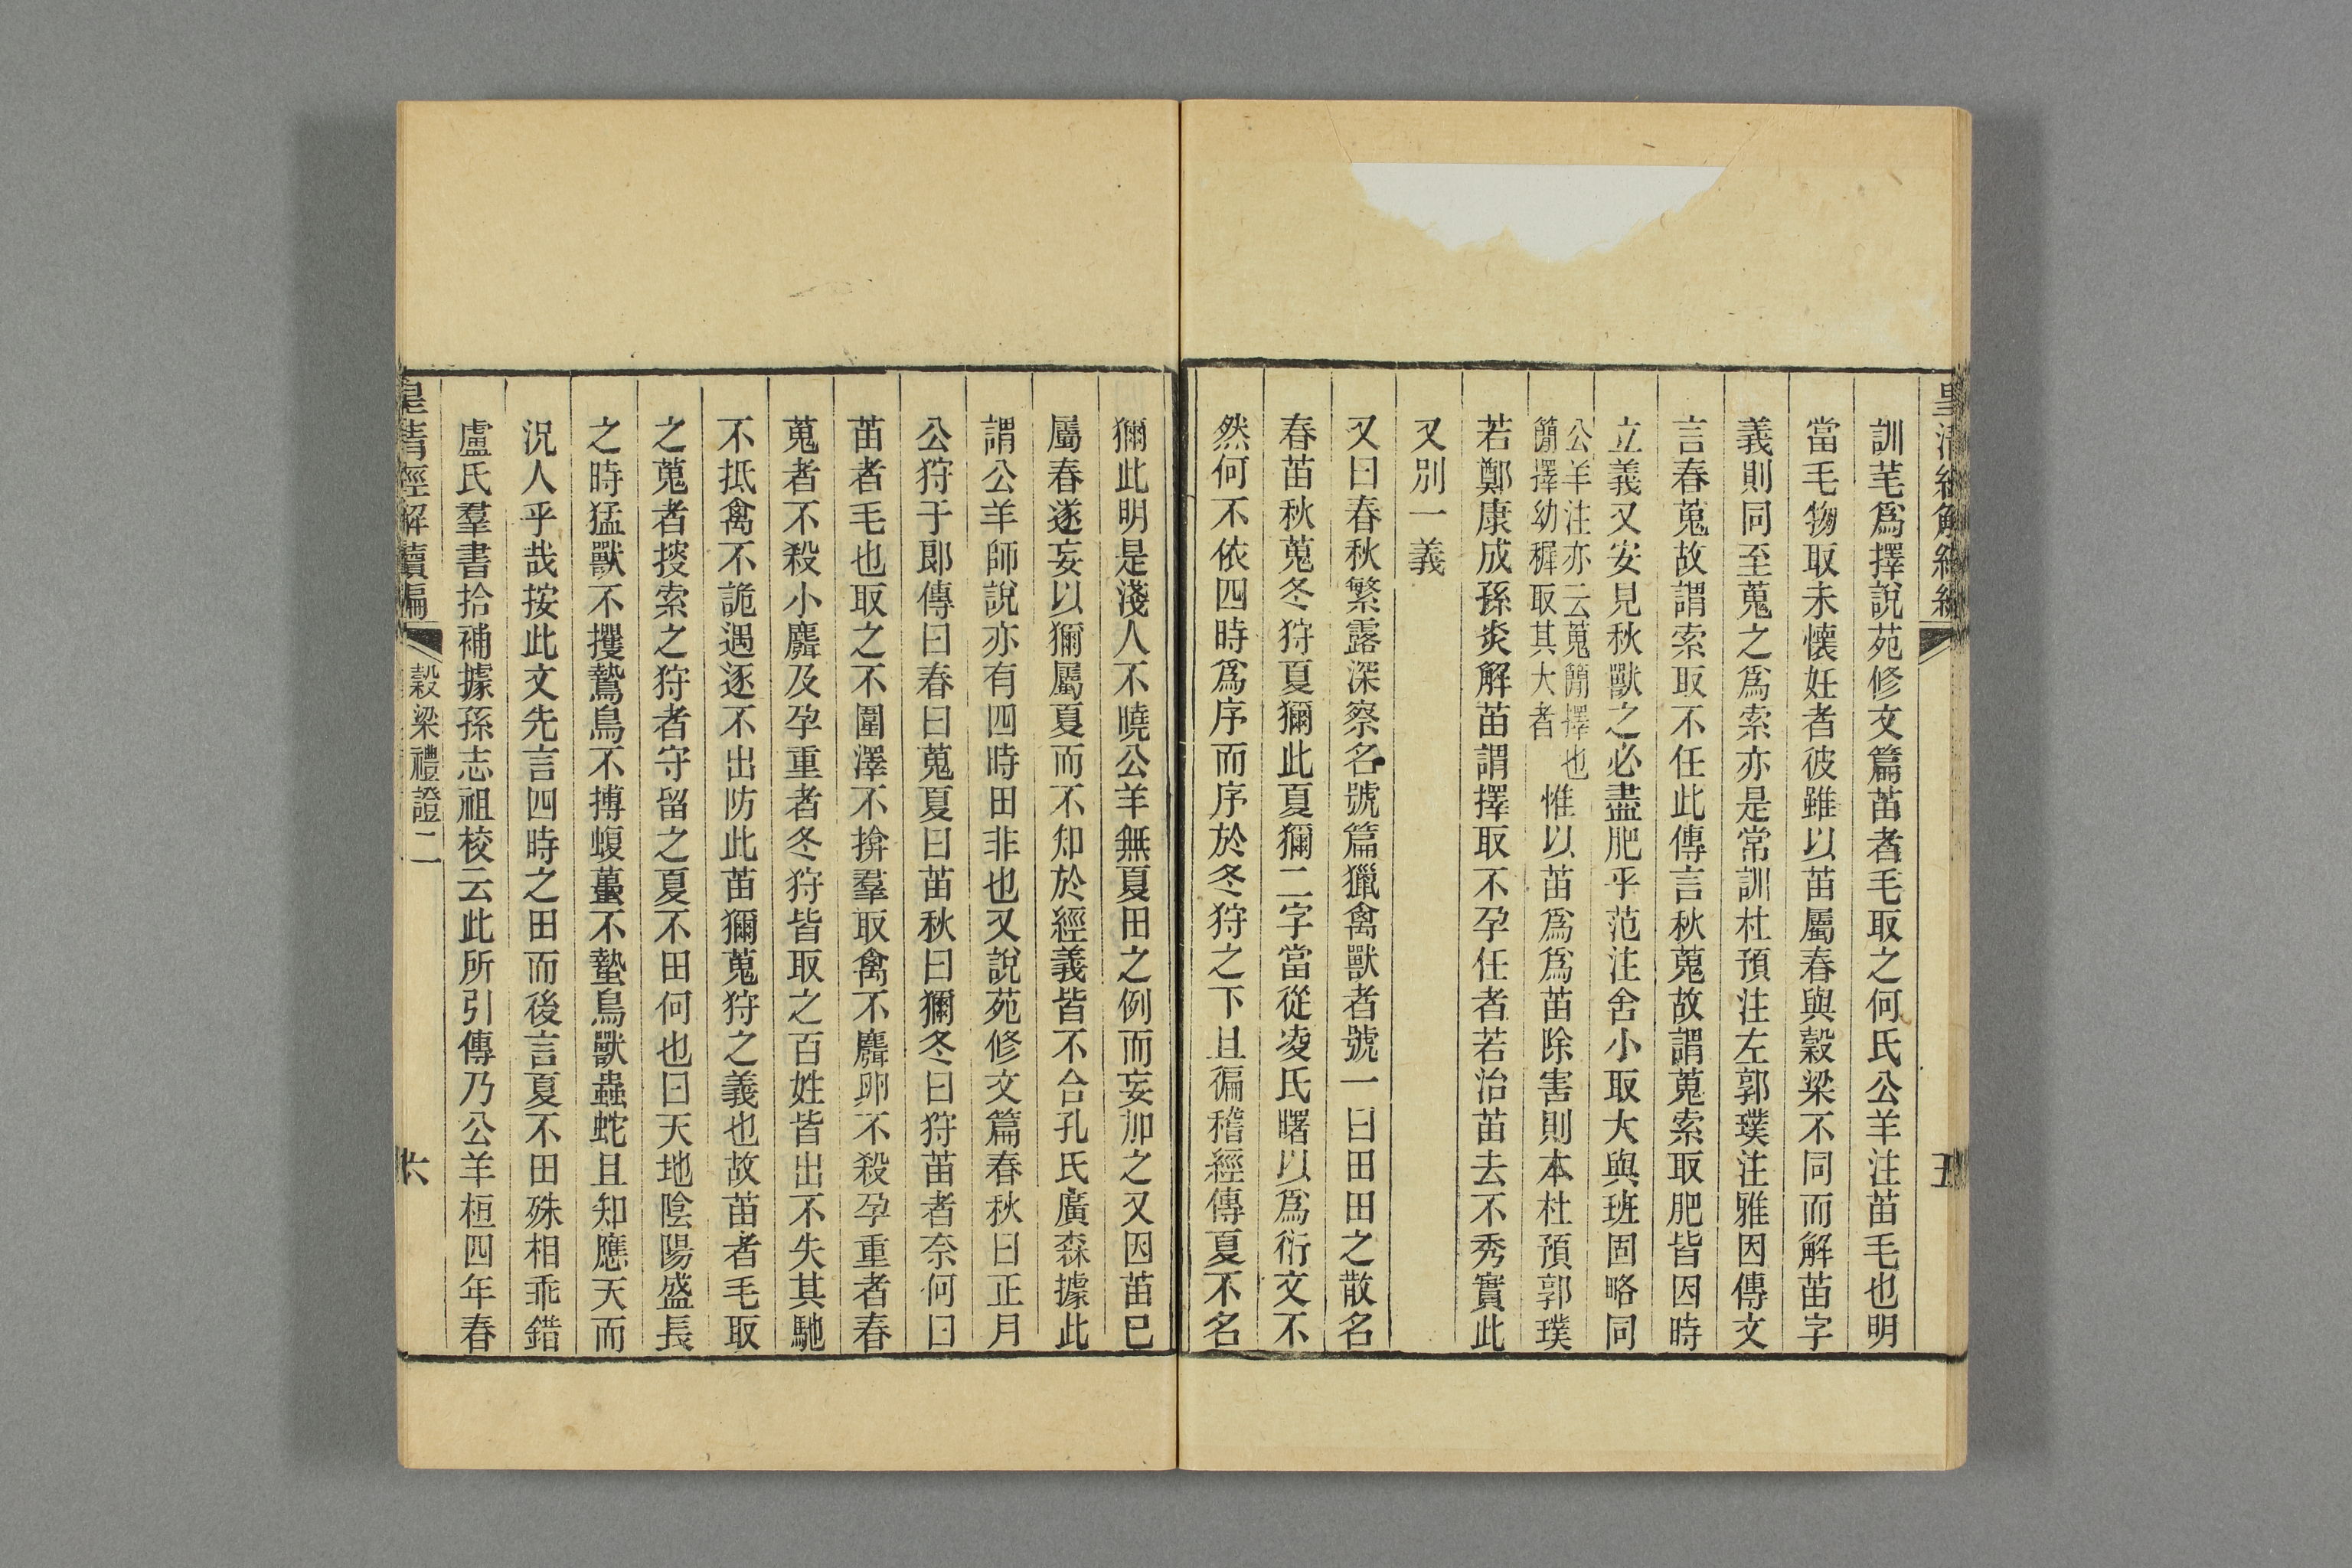 訓芼爲擇說苑修文篇苗者毛取之何氏公羊注苗毛也明
當毛物取未懷妊者彼雖以苗屬春與穀梁不同而解苗字
義則同至蒐之爲索亦是常訓杜預注左郭璞注雅因傳文
言春蒐故謂索取不任此傳言秋蒐故謂蒐索取肥皆因時
立義又安見秋獸之必盡肥乎范注舍小取大與班固略同
公羊注亦云蒐簡擇也
簡擇幼穉取其大者
惟以苗爲爲苗除害則本杜預郭璞
若鄭康成孫炎解苗謂擇取不孕任者若治苗去不秀實此
又別一義
又曰春秋繁露深察名號篇獵禽獸者號一曰田田之散名
春苗秋蒐冬狩夏獮此夏獮二字當從凌氏曙以爲衍文不
然何不依四時爲序而序於冬狩之下且徧稽經傳夏不名
獮此明是淺人不曉公羊無夏田之例而妄加之又因苗已
屬春遂妄以獮屬夏而不知於經義皆不合孔氏廣森據此
謂公羊師說亦有四時田非也又說苑修文篇春秋曰正月
公狩于郎傳曰春曰蒐夏曰苗秋曰獮冬曰狩苗者奈何曰
苗者毛也取之不圍澤不揜羣取禽不麛卵不殺孕重者春
蒐者不殺小麛及孕重者冬狩皆取之百姓皆出不失其馳
不抵禽不詭遇逐不出防此苗獮蒐狩之義也故苗者毛取
之蒐者搜索之狩者守留之夏不田何也曰天地陰陽盛長
之時猛獸不攫鷙鳥不搏蝮蠆不螫鳥獸蟲蛇且知應天而
況人乎哉按此文先言四時之田而後言夏不田殊相乖錯
盧氏羣書拾補據孫志祖校云此所引傳乃公羊桓四年春
皇清經解續編
穀梁禮證二
六